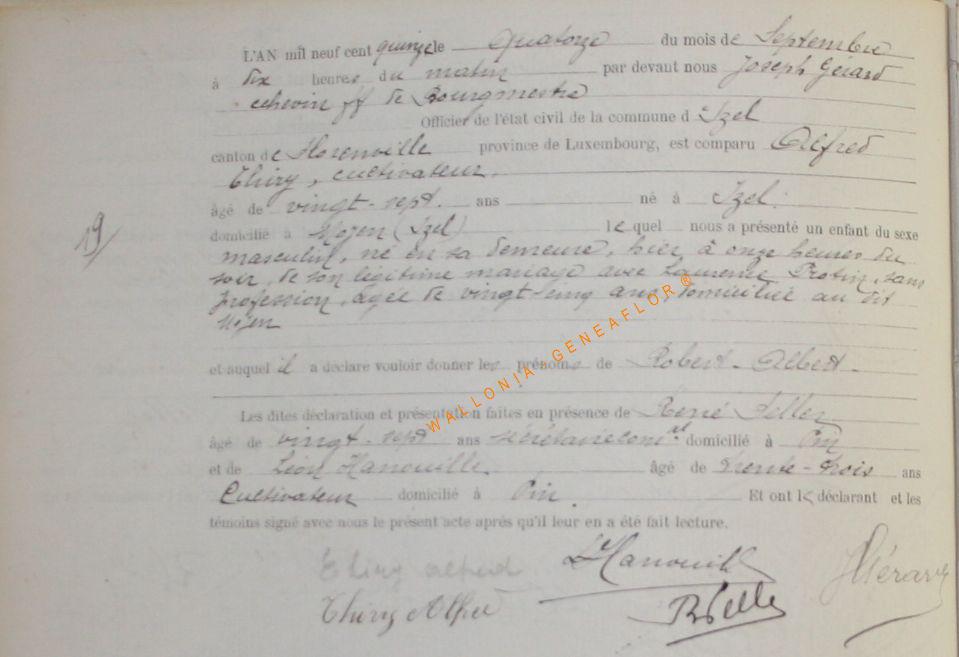 L'AN mil neuf cent quinze le Quatorze du mois de Septembre
à dix heures du matin par devant nous Joseph Gérard
échevin ff de Bourgmestre
Officier de l'état civil de la commune d'Izel
canton de Florenville province de Luxembourg, est comparu Alfred
Thiry, cultivateur,
âgé de vingt-sept ans né à Izel
domicilié à Moyen (Izel) lequel nous a présenté un enfant du sexe
19/
masculin, né en sa demeure, hier, à onze heures du
soir, de son légitime mariage avec Laurence Robin, sans
profession, âgée de vingt-cinq ans, domiciliée au dit
Moyen
WALLONIA GENEAFLOR®
et auquel il a déclaré vouloir donner les prénoms de Robert-Albert-
Les dites déclaration et présentation faites en présence de René Feller
âgé de vingt-sept ans secrétaire comal domicilié à Pin
et de Léon Hanouille âgé de trente-trois ans
Cultivateur domicilié à Pin Et ont le déclarant et les
témoins signé avec nous le présent acte après qu'il leur en a été fait lecture.
Thiry alfred LHanouille JGérard
Thiry Alfred RFeller